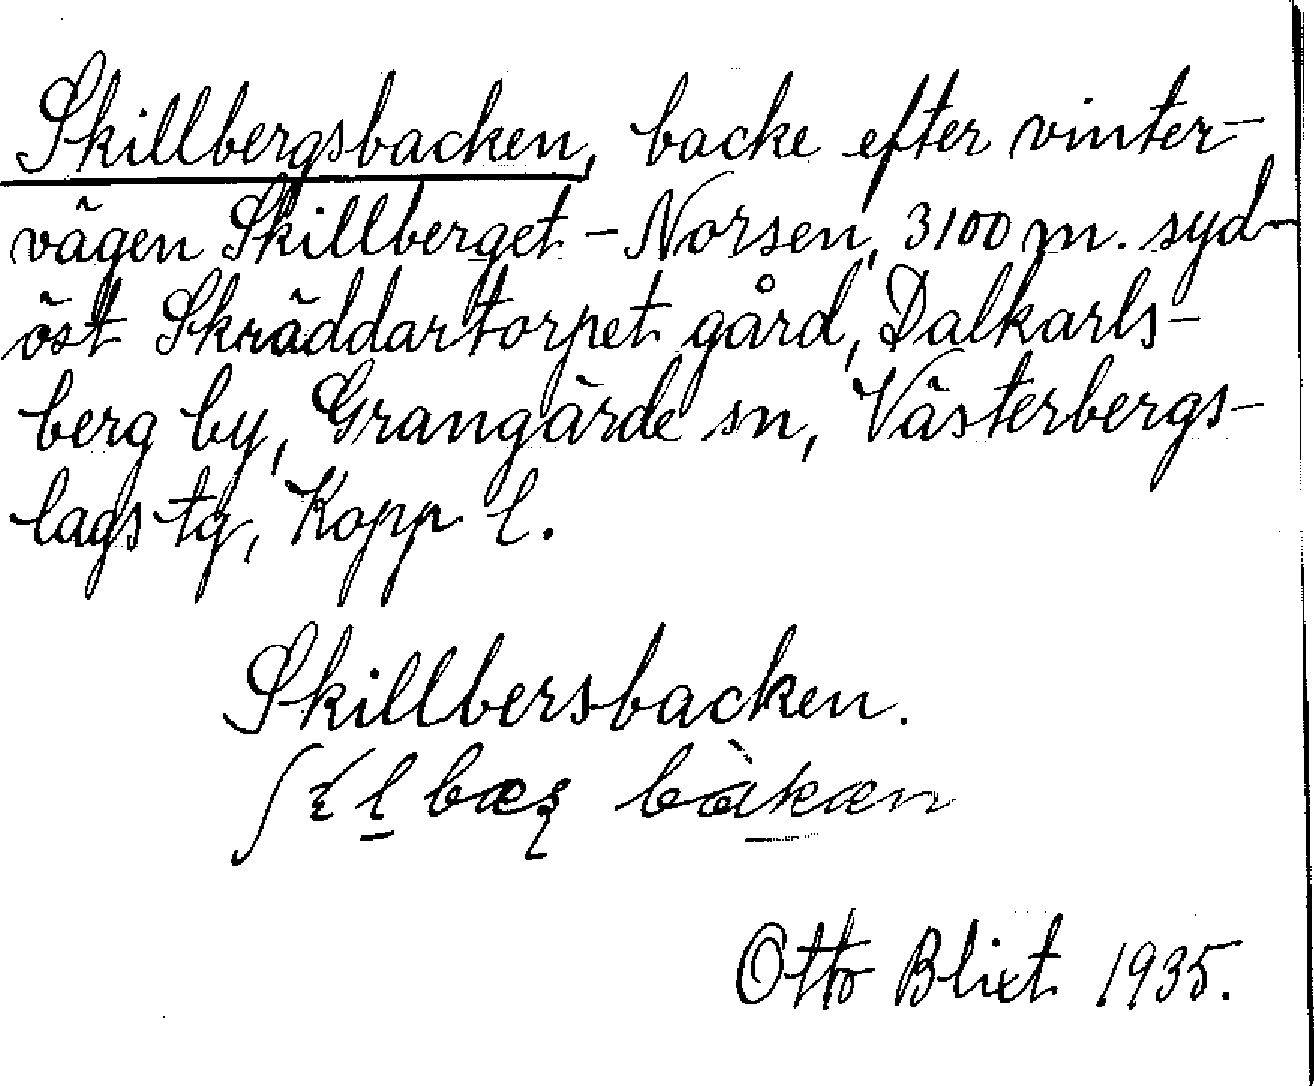 Skillbergsbacken, backe efter vinter-
vägen Skillberget - Norsen, 3100 m. syd-
öst Skräddartorpet gård, Dalkarls-
berg by, Grangärde sn, Västerbergs-
lags tg, Kopp l.
Skillbersbacken.
bàkæn
Otto Blixt 1935.